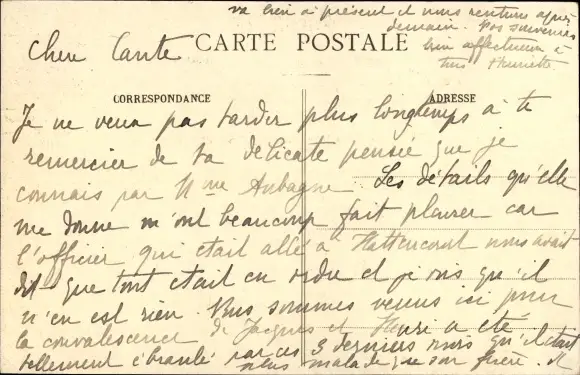 Chère Tante
CARTE POSTALE
CORRESPONDANCE
ADRESSE
Je ne veux pas tarder plus longtemps à te
remercier de ta délicate pensée que je
connais par Mme Aubagne. Les détails qu'elle
me donne m'ont beaucoup fait plaisir car
l'officier qui était allé à Hattencourt nous avait
dit que tout était en ordre et je vois qu'il
n'en est rien. Nous sommes venus ici pour
la convalescence de Jacques et Henri a été
tellement ébranlé par ces 3 derniers mois qu'il était
plus malade que son frère. Il
va bien à présent et nous rentrons après
demain. Nos souvenirs
bien affectueux à
tous Henriette